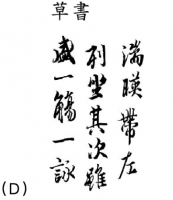 草書
湍暎帶左
列坐其次雖
盛一觴一詠
(D)